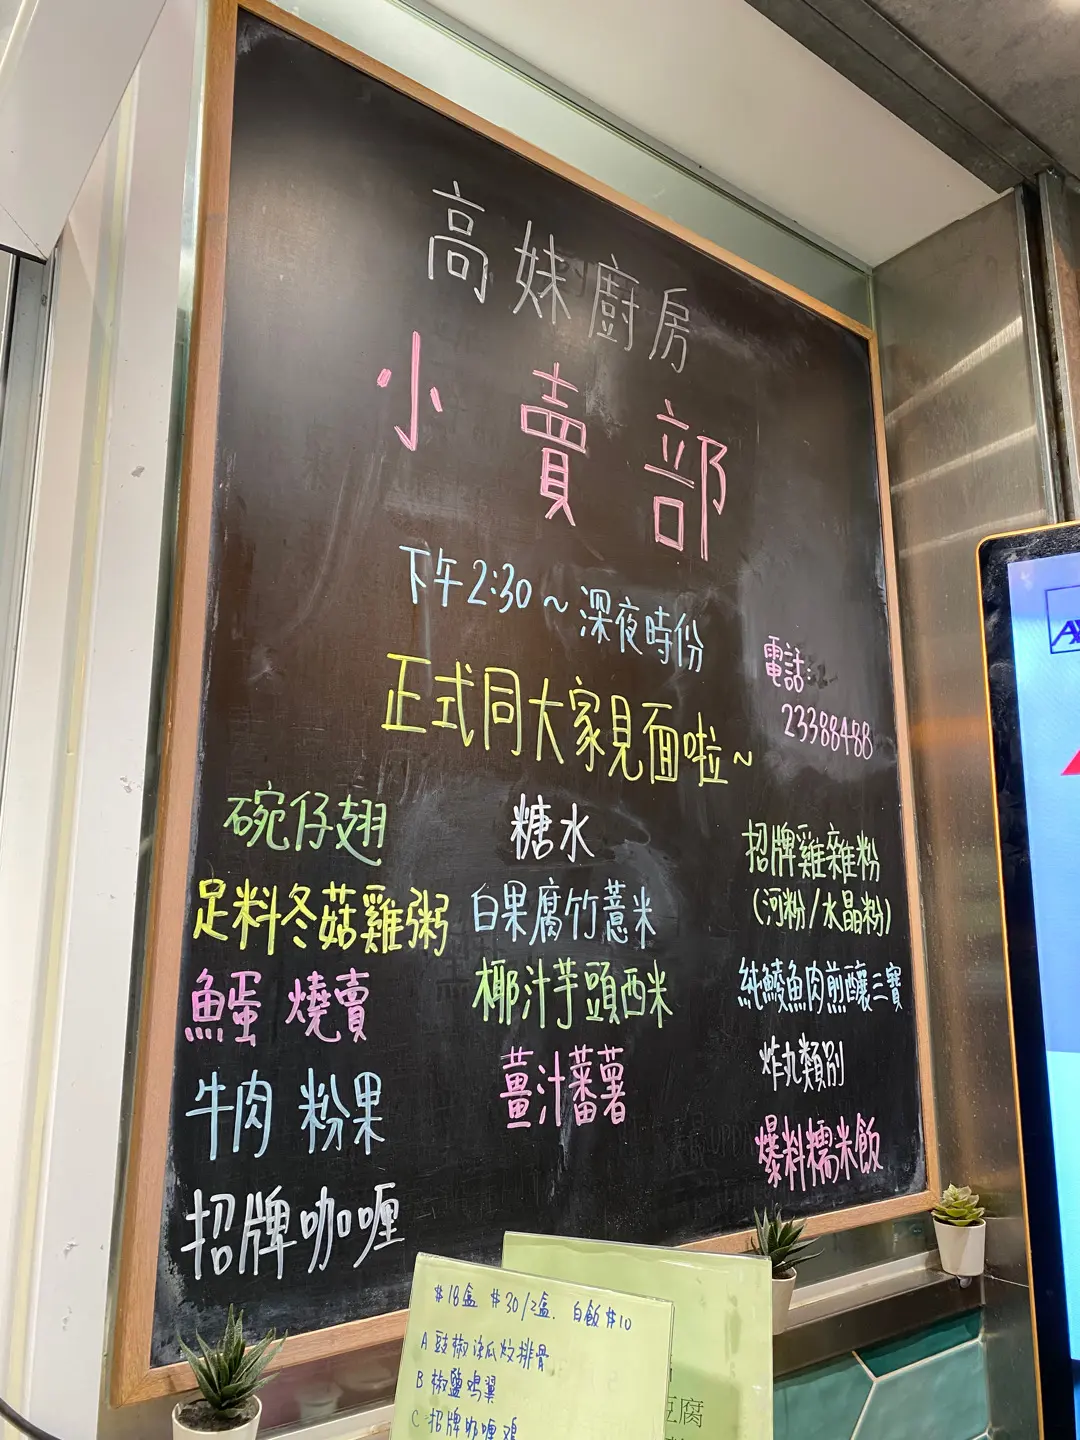 高妹廚房
小賣部
下午2:30~深夜時份
正式同大家見面啦~
電話:
23388488
碗仔翅
足料冬菇雞粥
魚蛋 燒賣
牛肉 粉果
招牌咖喱
糖水
白果腐竹薏米
椰汁芋頭西米
薑汁蕃薯
招牌雞雜粉
(河粉/水晶粉)
純鯪魚肉煎釀三寶
炸丸類別
爆料糯米飯
#18盒 #30/2盒. 白飯#10
A 豉椒涼瓜炆排骨
B 椒鹽鸡翼
C 招牌咖喱鸡
豆腐